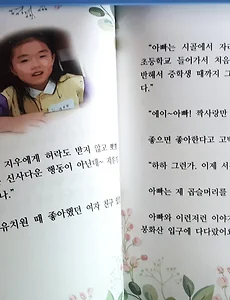 지우에게 허락도 받지 않고
신사다운 행동이 아닌데~
나."
유치원 때 좋아했던 여자 친구
"아빠는 시골에서 자
초등학교 들어가서 처음
반해서 중학생 때까지 그
다."
"에이~아빠! 짝사랑만
좋으면 좋아한다고 고백
"하하 그런가. 이제 서
아빠는 제 곱슬머리를
아빠와 이런저런 이야기
봉화산 입구에 다다랐어요